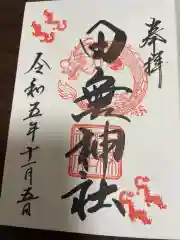 奉拝
田無神社
令和五年十一月五日